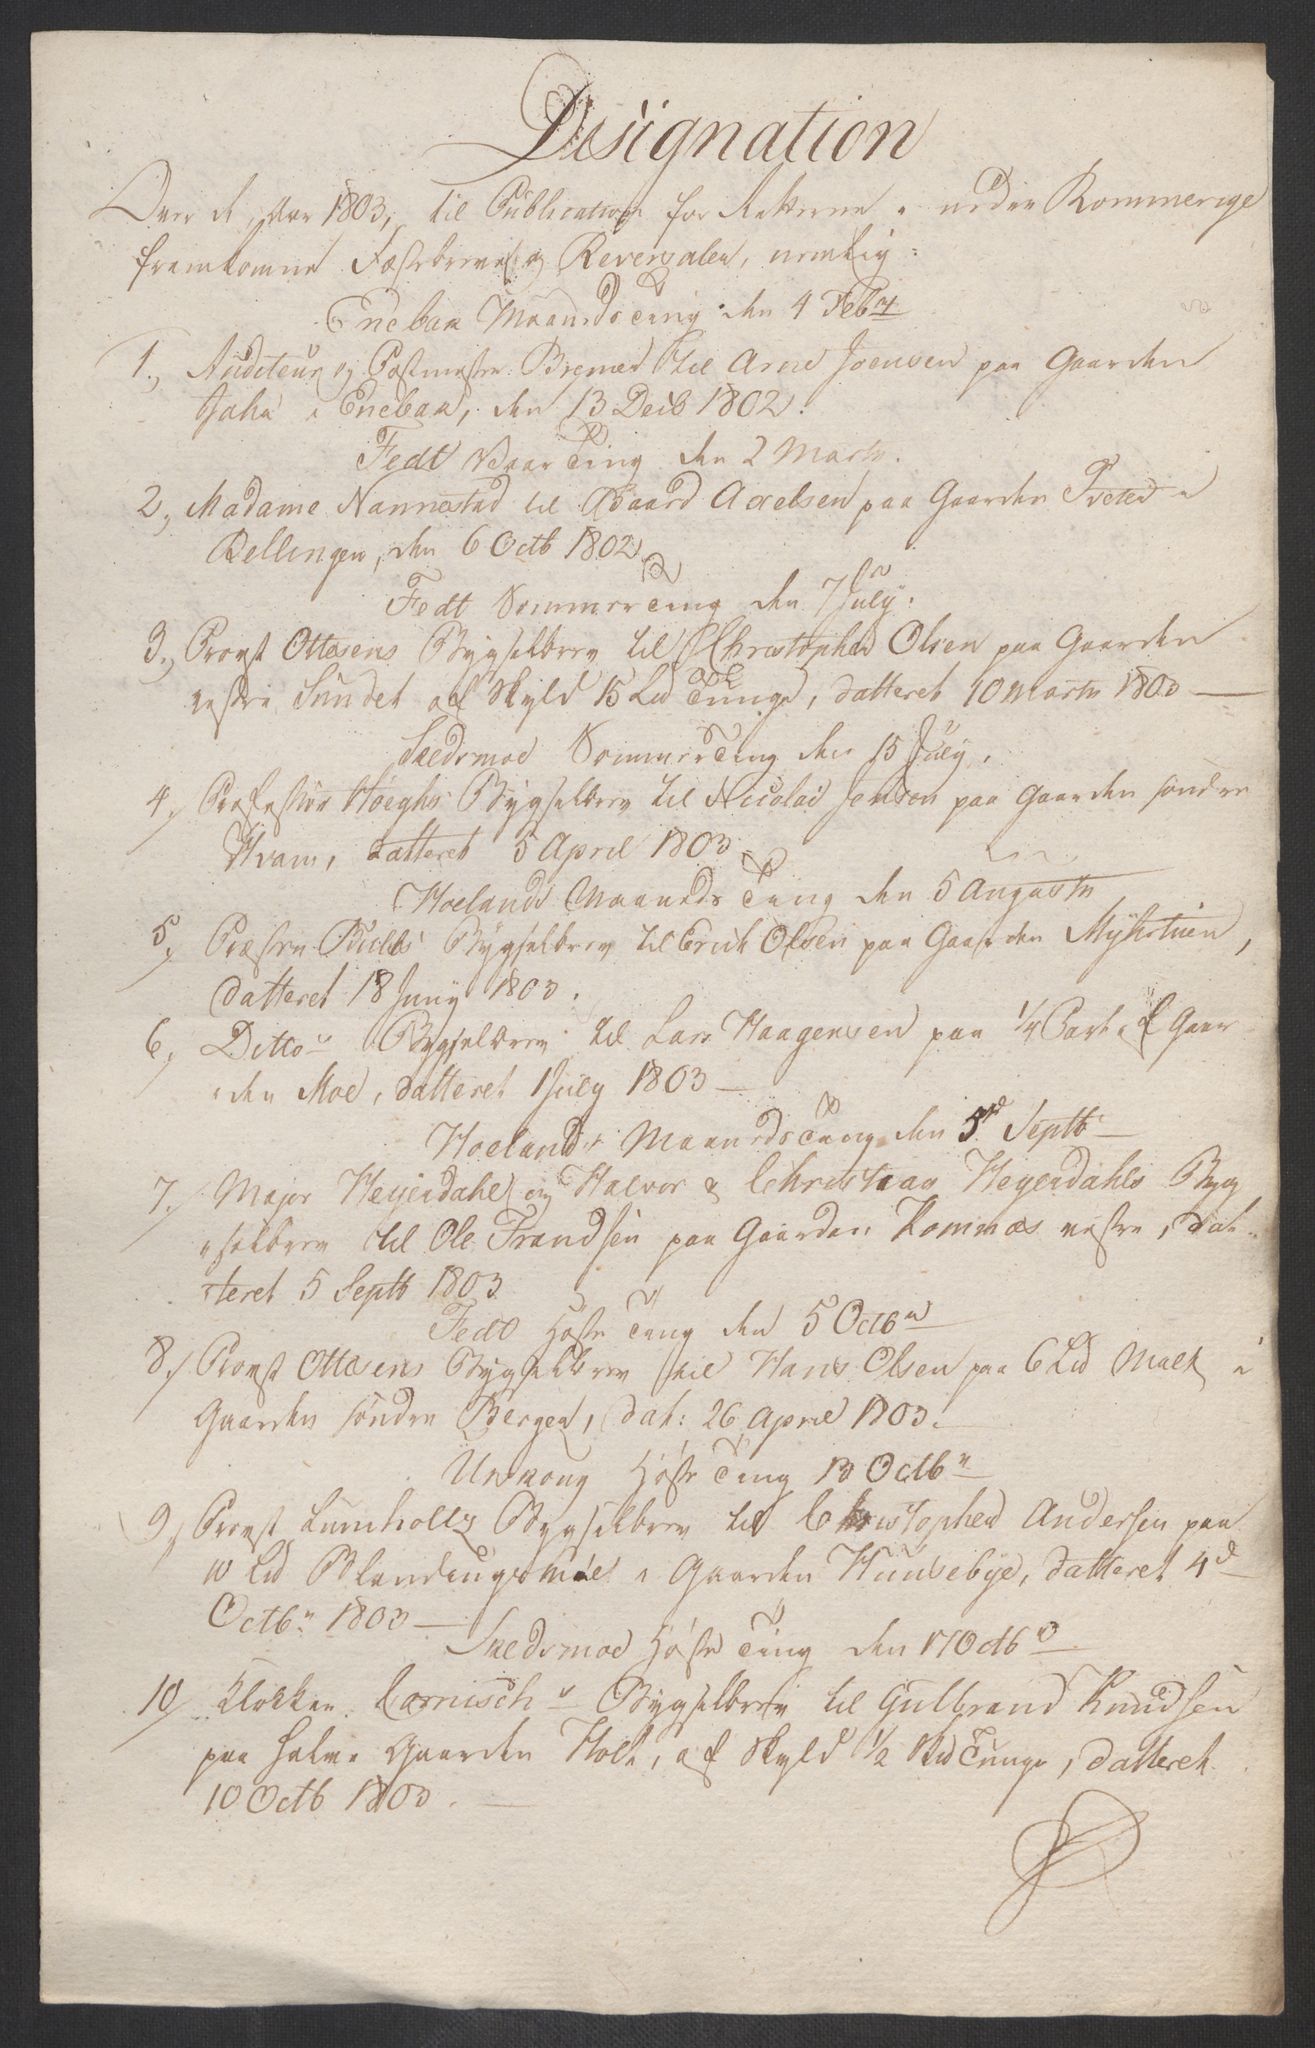 Designation
Over de, Aar 1803, til Publication for Retterne i nedre Rommerige
fremkomne Festebreve og Reversaler, nemlig:
Enebak Maaneds Ting den 4 Febr
1., Auditeur og Postmester Bremer til Arne Joensen paa Gaarden
i Enebak, den 13 Decb 1802.
Fedt Vaar Ting den 2 Marts.
2., Madame Nannestad til Baard Axelsen paa Gaarden Tveter i
Rellingen, den 6 Octb 1802
Fedt Sommer Ting den 7 July.
3., Provst Ottesens Bygselbrev til Christopher Olsen paa Gaarden
vestre Sundet af Skyld 15 Lid Tunge, datteret 10 Marts 1803 —
Skedsmoe Sommer Ting den 15 July.
4., Professor Höeghs Bygselbrev til Nicolai Jensen paa Gaarden söndre
Hvam, datteret 5 April 1803
Hoelands Maaneds Ting den 5 Augustn
5., Præsten Bulls Bygselbrev til Erich Olsen paa Gaarden Myhrtuen,
datteret 18 Juny 1803.
6., Ditto Bygselbrev til Lars Haagensen paa 1/4 Part af Gaar
den Moe, datteret 1 July 1803 —
Hoelands Maaneds Ting den 5d Septb —
7., Major Heyerdahl og Halvor & Heyerdahls Byg
selbrev til Ole Frandsen paa Gaarden Kommæs vestre, dat
teret 5 Septb 1803
Fedt Höste Ting den 5 Octbr
8., Provst Ottesens Bygselbrev til Hans Olsen paa 6 Lid Malt i
Gaarden söndre Bergen, dat: 26 April 1803.
Urskoug Höste Ting 13 Octbr
9., Provst Lumholtz Bygselbrev til Christopher Andersen paa
10 Lid Blandingsmæl i Gaarden Huusebye, datteret 4d
Octbr 1803 —
Skedsmoe Höste Ting den 17 Octbr
10, Klokker Carnischs Bygselbrev til Gulbrand Knudsen
paa halve Gaarden Holt, af Skyld 1/2 Skid Tunge, datteret
10 Octb 1803. —